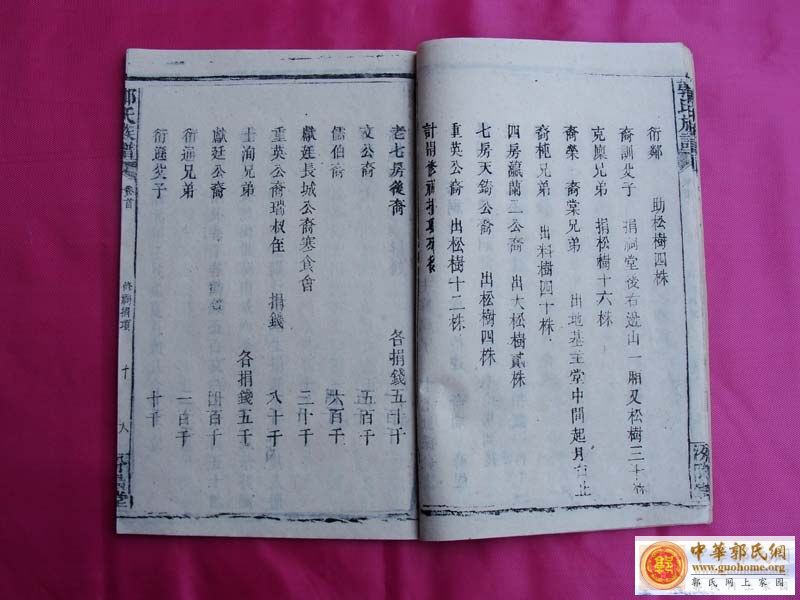 郭氏族譜
衍鄰 助松樹四株
裔訓父子 捐祠堂後右邊山一廂又松樹三十株
克廩兄弟 捐松樹十六株
裔榮 裔棠兄弟 出地基主堂中間起月台止
裔純兄弟 出料樹四十株
四房瀛蘭二公裔 出大松樹貳株
七房天錫公裔 出松樹四株
重英公裔 出松樹十二株
計開修祠捐項列後
老七房後裔 各捐錢五十千
文公裔 五百千
儒伯裔 六百千
獻廷長城公裔寒食會 三十千
重英公裔瑞叔侄 捐錢 八十千
士洵兄弟 各捐錢五千
獻廷公裔 四百千
衍通兄弟 一百千
衍遜父子 十千
郭氏族譜 卷首 修祠捐項 十
中華郭氏網
www.guohome.org
郭氏网上家园